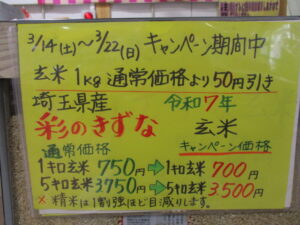 3/14(土)～3/22(日) キャンペーン期間中
玄米1kg通常価格より50円引き
埼玉県産 令和7年
彩のきずな 玄米
通常価格 キャンペーン価格
1キロ玄米 750円→1キロ玄米 700円
5キロ玄米 3750円→5キロ玄米 3500円
×精米は1割強ほど目減りします。